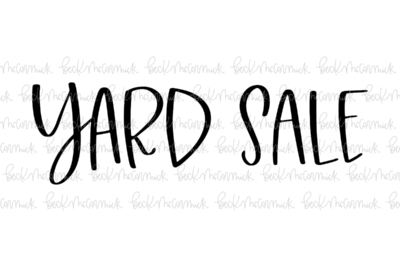 YARD SALE